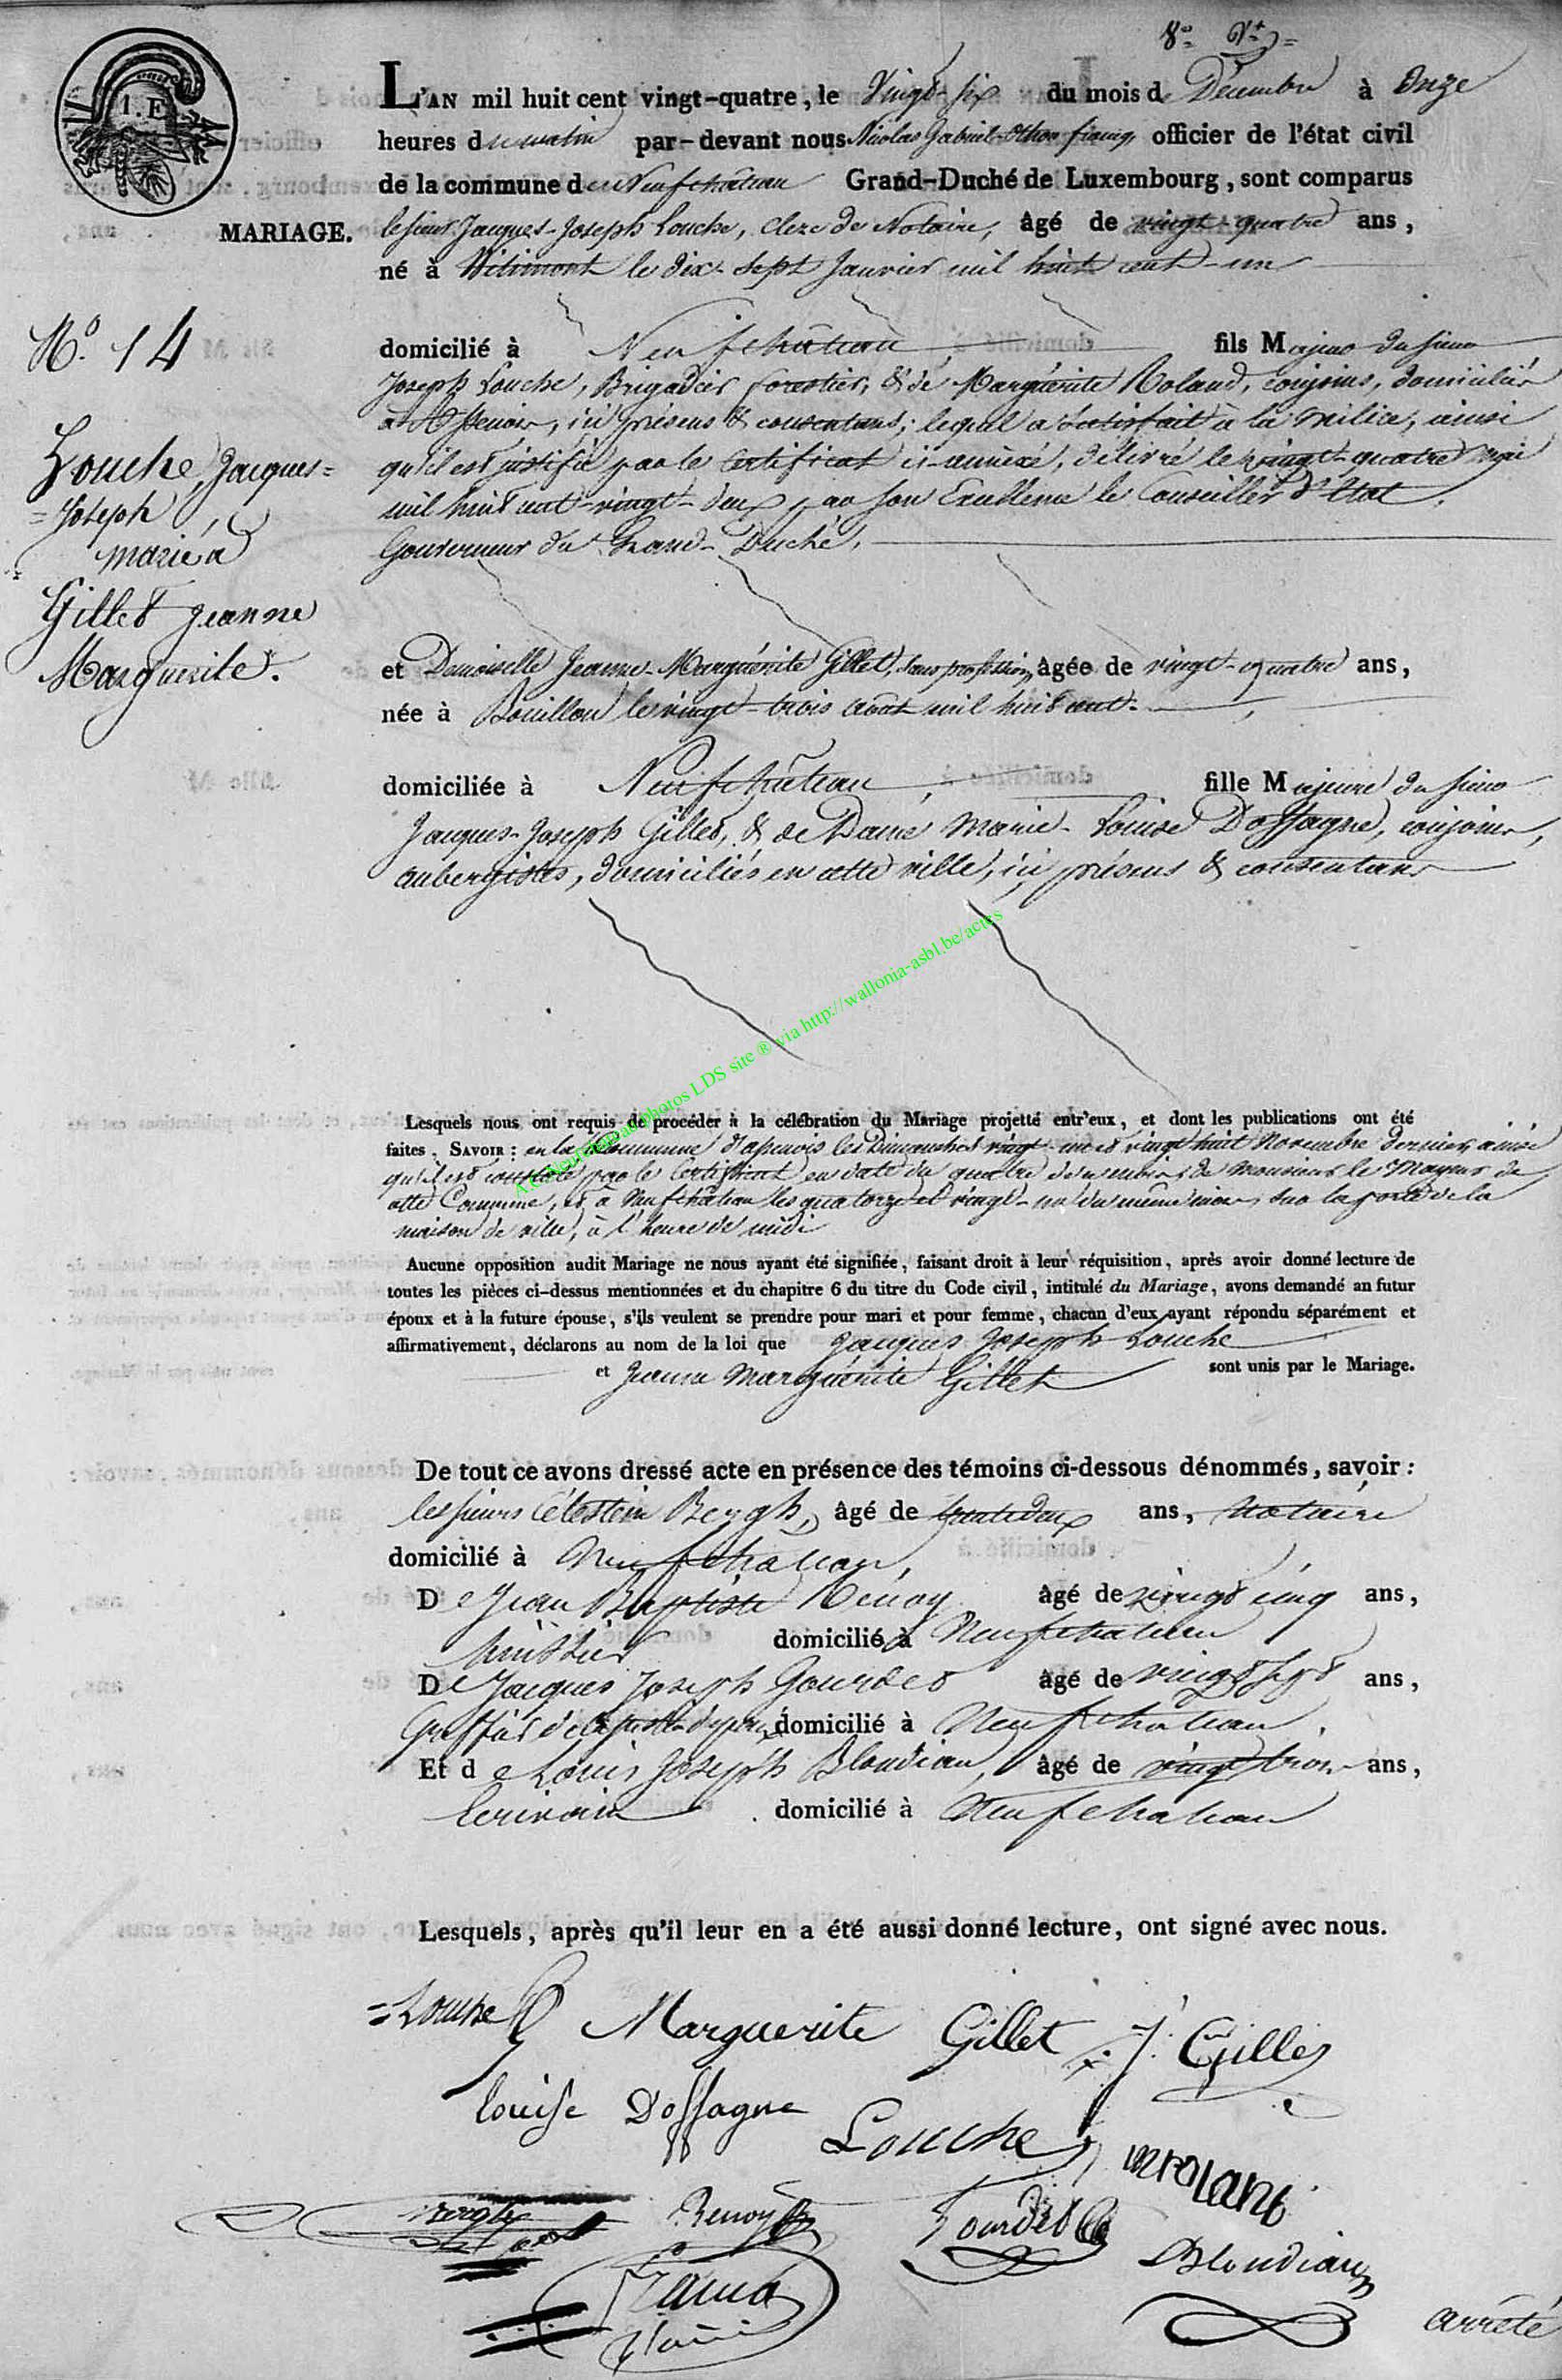 8e. Vt.
I.E
L'AN mil huit cent vingt-quatre, le Vingt-six du mois de Décembre à Onze
heures du matin par-devant nous Nicolas Gabriel Othon officier de l'état civil
de la commune de Neufchâteau Grand-Duché de Luxembourg, sont comparus
MARIAGE. le sieur Jacques-Joseph Louche, Clerc de Notaire, âgé de vingt-quatre ans,
né à Witimont le dix-sept Janvier mil huit cent-un
No. 14
domicilié à Neufchâteau, fils Majeur du sieur
Joseph Louche, Brigadier forestier, & de Marguérite Roland, conjoins, domiciliés
à Assenois, ici présens & consentans; lequel a satisfait à la milice, ainsi
Louche, Jacques=
=Joseph
marié à
Gillet Jeanne
Marguerite.
qu'il est justifié par le Certificat ci-annexé, délivré le vingt-quatre mai
mil huit cent-vingt-deux par son Excellence le Conseiller d'Etat,
Gouverneur du Grand-Duché.
et Demoiselle Jeanne-Marguérite Gillet, sans profession, âgée de vingt-quatre ans,
née à Bouillon le vingt-trois août mil huit cent.
domiciliée à Neufchâteau, fille Majeure du sieur
Jacques-Joseph Gillet, & de Dame Marie-Louise Doffagne, conjoins,
aubergistes, domiciliés en cette ville, ici présens & consentans
A.C. Neufchâteau photos LDS site ® via http://wallonia-asbl.be/actes
Lesquels nous ont requis de procéder à la célébration du Mariage projetté entr'eux, et dont les publications ont été
faites, SAVOIR: en la Commune d'assenois les Dimanches vingt-un et vingt huit Novembre dernier, ainsi
qu'il est constaté par le Certificat en date du quatre décembre, de Monsieur le Mayeur de
cette Commune, et à Neufchâteau les quatorze et vingt-un du même mois, sur la porte de la
maison de ville, à l'heure de midi
Aucune opposition audit Mariage ne nous ayant été signifiée, faisant droit à leur réquisition, après avoir donné lecture de
toutes les pièces ci-dessus mentionnées et du chapitre 6 du titre du Code civil, intitulé du Mariage, avons demandé au futur
époux et à la future épouse, s'ils veulent se prendre pour mari et pour femme, chacun d'eux ayant répondu séparément et
affirmativement, déclarons au nom de la loi que Jacques Joseph Louche
et Jeanne Marguérite Gillet sont unis par le Mariage.
De tout ce avons dressé acte en présence des témoins ci-dessous dénommés, savoir:
les sieurs Célestin Bergh, âgé de trente deux ans, Notaire
domicilié à Neufchateau,
De Jean Baptiste Renoy âgé de vingt cinq ans,
huissier domicilié à Neufchateau
De Jacques Joseph Gourdet âgé de vingt sept ans,
Greffier de la justice de paix domicilié à Neufchateau.
Et de Louis Joseph Blondiau, âgé de vingt trois ans,
Ecrivain domicilié à Neufchateau
Lesquels, après qu'il leur en a été aussi donné lecture, ont signé avec nous.
=Louche Marguerite Gillet J. Gillet
Louise Doffagne Louche m rolant
Bergh Renoy Gourdet
Blondiau
arrêté